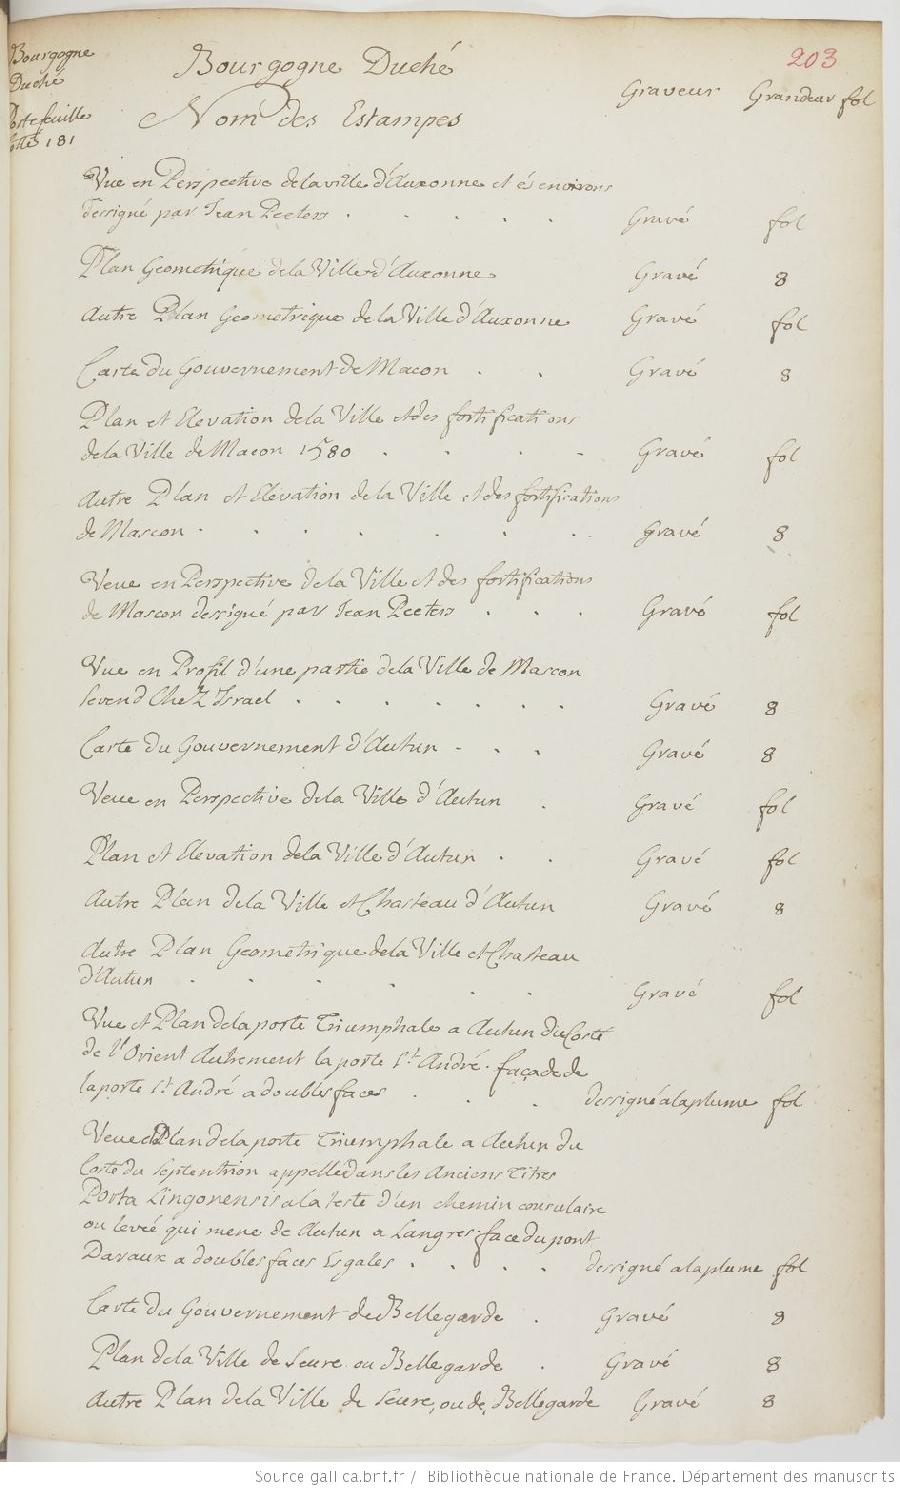 Bourgogne
Duché
Portefeuille
cotté 181
Bourgogne Duché
203
Nom des Estampes
Graveur
Grandeur fol
Vue en Perspective de la ville d'Auxonne et es environs
dessigné par Jean Peeters . . . . . Gravé fol
Plan Geometrique de la Ville d'Auxonne Gravé 8
Autre Plan Geometrique de la Ville d'Auxonne Gravé fol
Carte du Gouvernement de Macon . . Gravé 8
Plan et Elevation de la Ville et des fortifications
de la Ville de Macon 1580 . . . . Gravé fol
Autre Plan et Elevation de la Ville et des fortifications
de Mascon . . . . . . . Gravé 8
Veue en Perspective de la Ville et des fortifications
de Mascon dessigné par Jean Peeters . . . Gravé fol
Vue en Profil d'une partie de la Ville de Mascon
se vend Chez Israel . . . . . . . Gravé 8
Carte du Gouvernement d'Autun . . . Gravé 8
Veue en Perspective de la Ville d'Autun . Gravé fol
Plan et Elevation de la Ville d'Autun . . Gravé fol
Autre Plan de la Ville et Chasteau d'Autun Gravé 8
Autre Plan Geometrique de la Ville et Chasteau
d'Autun . . . . . . Gravé fol
Vue et Plan de la porte Triumphale a Autun du Costé
de l'Orient Autrement la porte St André. façade de
la porte St André a doubles faces . . . dessigné a la plume fol
Veue et Plan de la porte Triumphale a Autun du
Costé du Septenthrion appellé dans les Anciens Titres
Porta Lingonensis a la teste d'un chemin consulaire
ou levéé qui mene de Autun a Langres. face du pont
Davaux a doubles faces Esgales . . . . dessigné a la plume fol
Carte du Gouvernement de Bellegarde . Gravé 8
Plan de la Ville de Seure ou Bellegarde . Gravé 8
Autre Plan de la Ville de Seure, ou de Bellegarde Gravé 8
Source gallica.bnf.fr / Bibliothèque nationale de France. Département des manuscrits